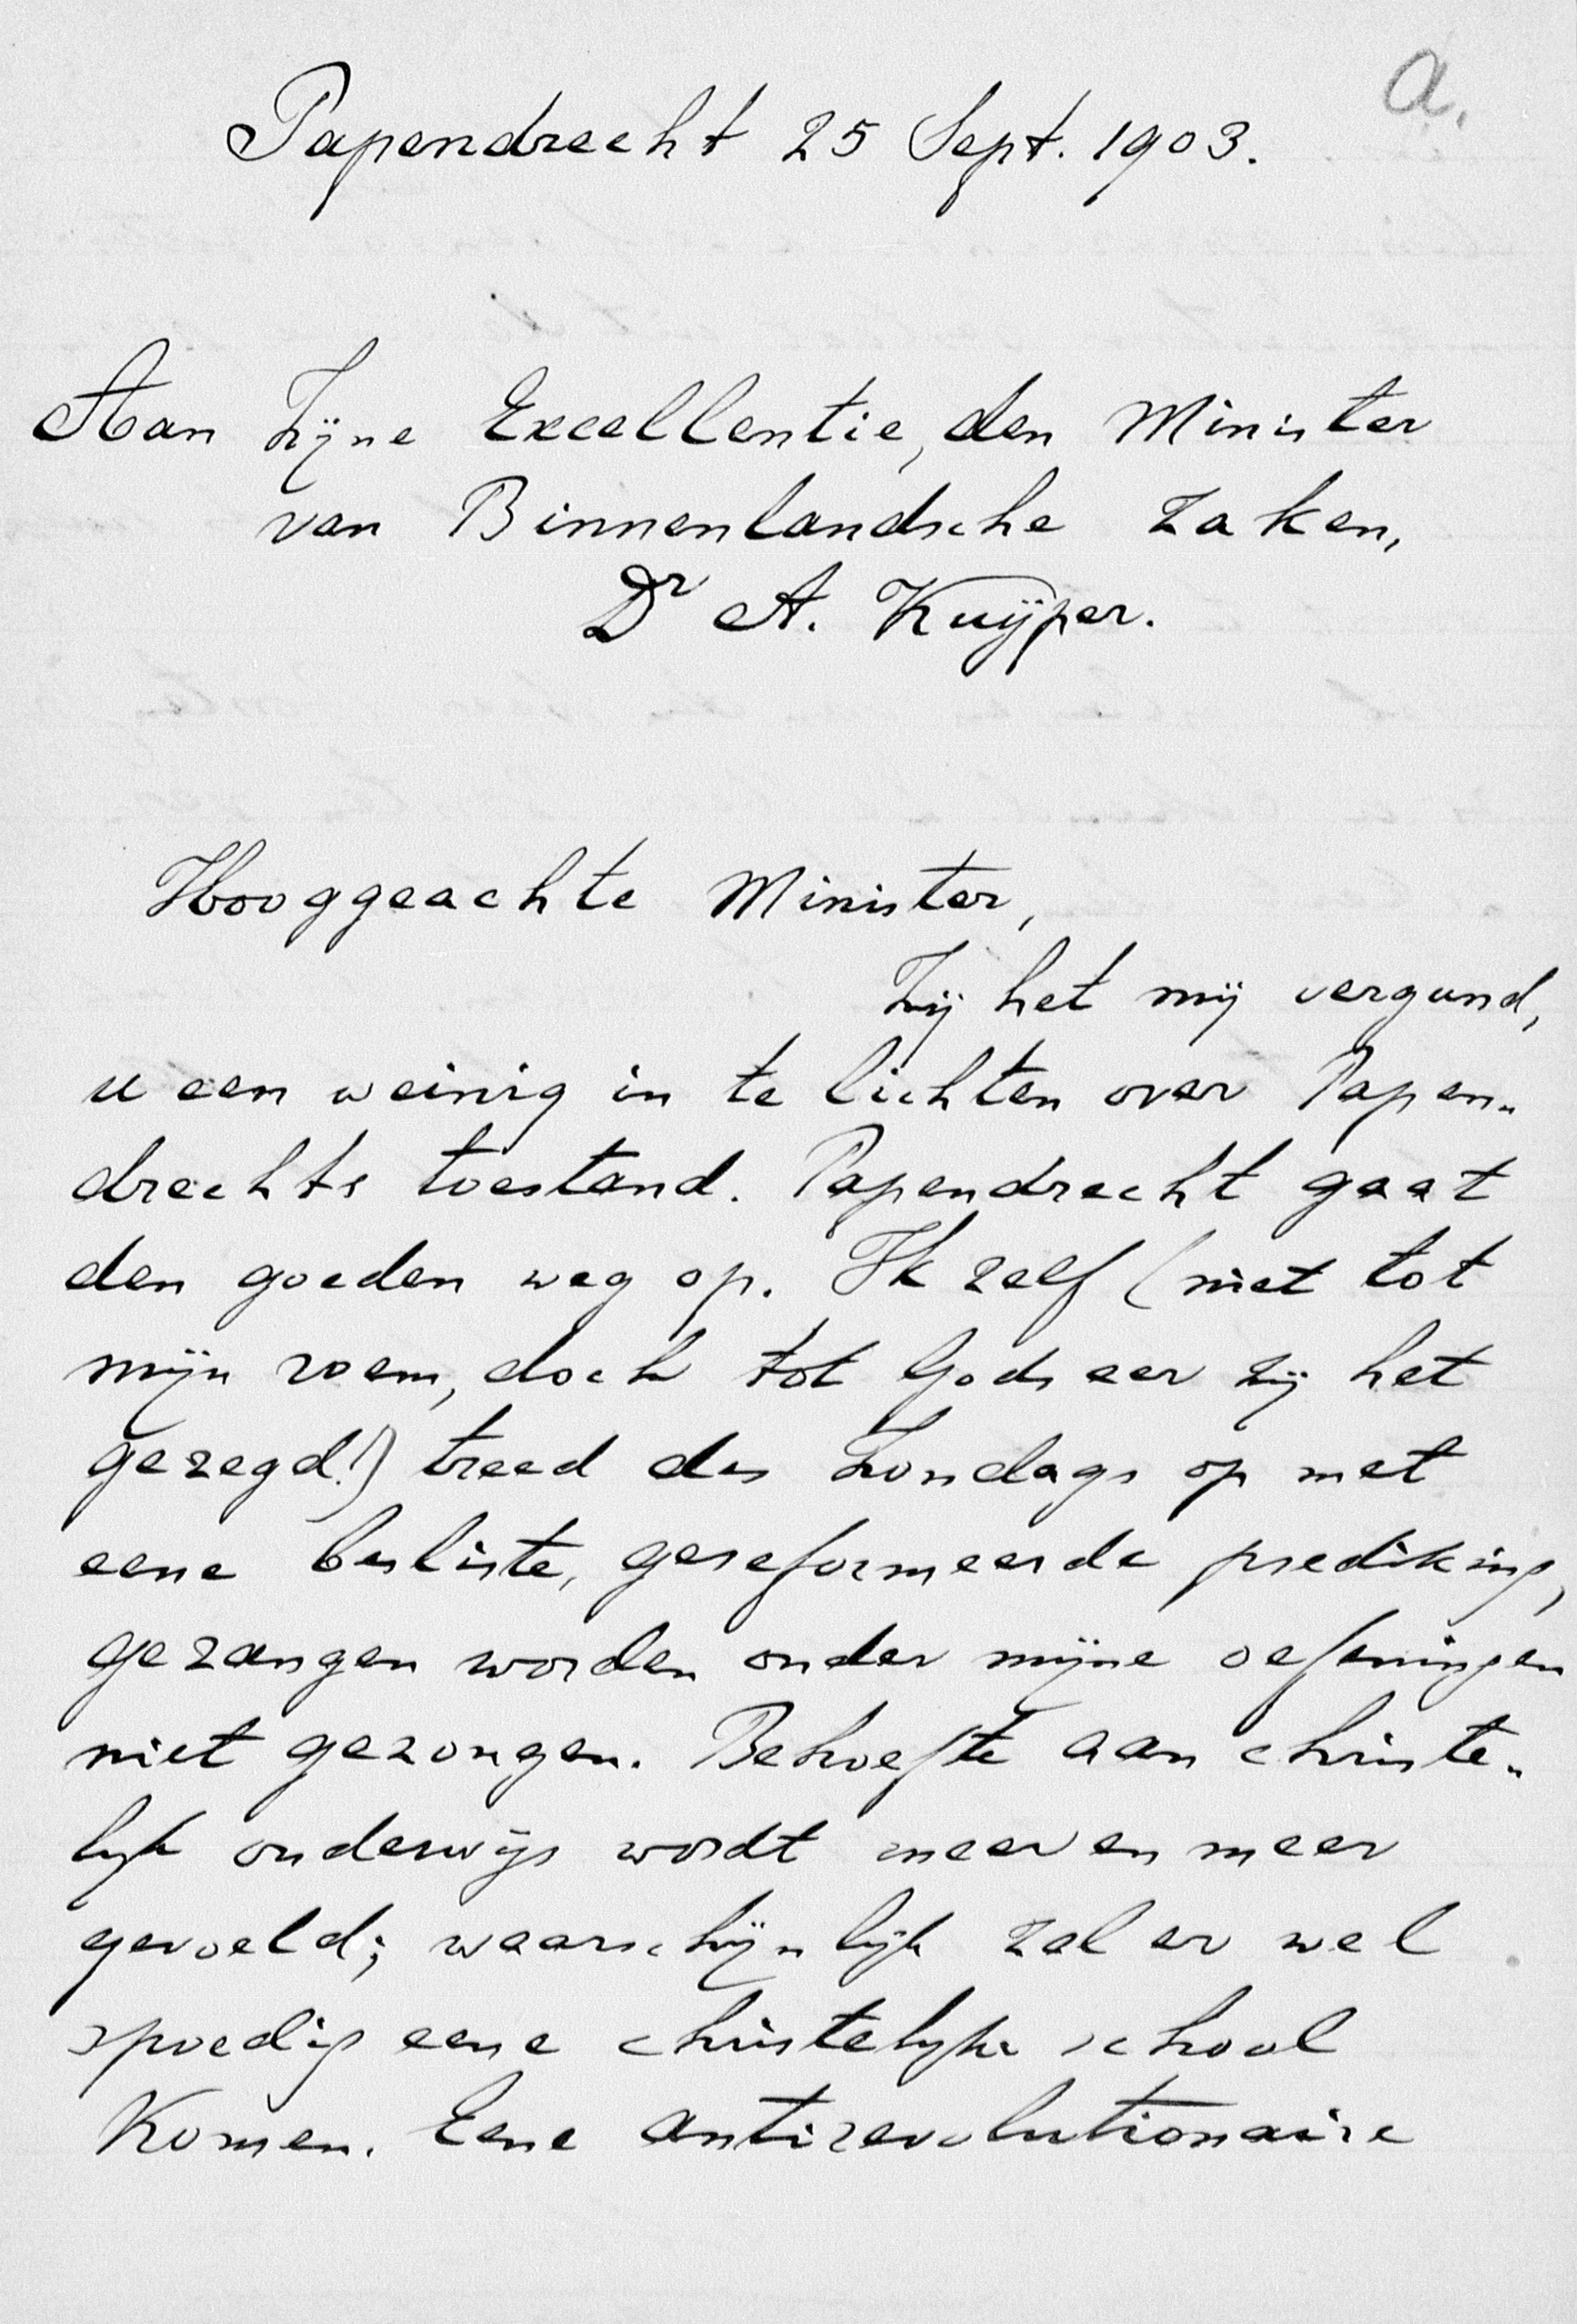 a.
Papendrecht 25 Sept. 1903.
Aan Zijne Excellentie, den Minister
van Binnenlandsche Zaken,
Dr A. Kuÿper.
Hooggeachte Minister,
Zij het mij vergund,
u een weinig in te lichten over Papen-
drechts toestand. Papendrecht gaat
den goeden weg op. Ik zelf (niet tot
mijn roem, doch tot Gods eer zij het
gezegd!) treed des Zondags op met
eene besliste, gereformeerde prediking,
gezangen worden onder mijne oefeningen
niet gezongen. Behoefte aan christe-
lijk onderwijs wordt meer en meer
gevoeld; waarschijnlijk zal er wel
spoedig eene christelijke school
komen. Eene antirevolutionaire